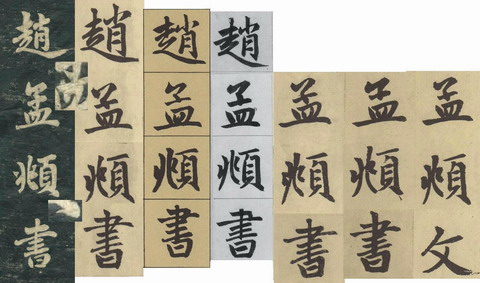 趙孟頫書
趙孟頫書
趙孟頫書
趙孟頫書
孟頫書
孟頫書
孟頫文